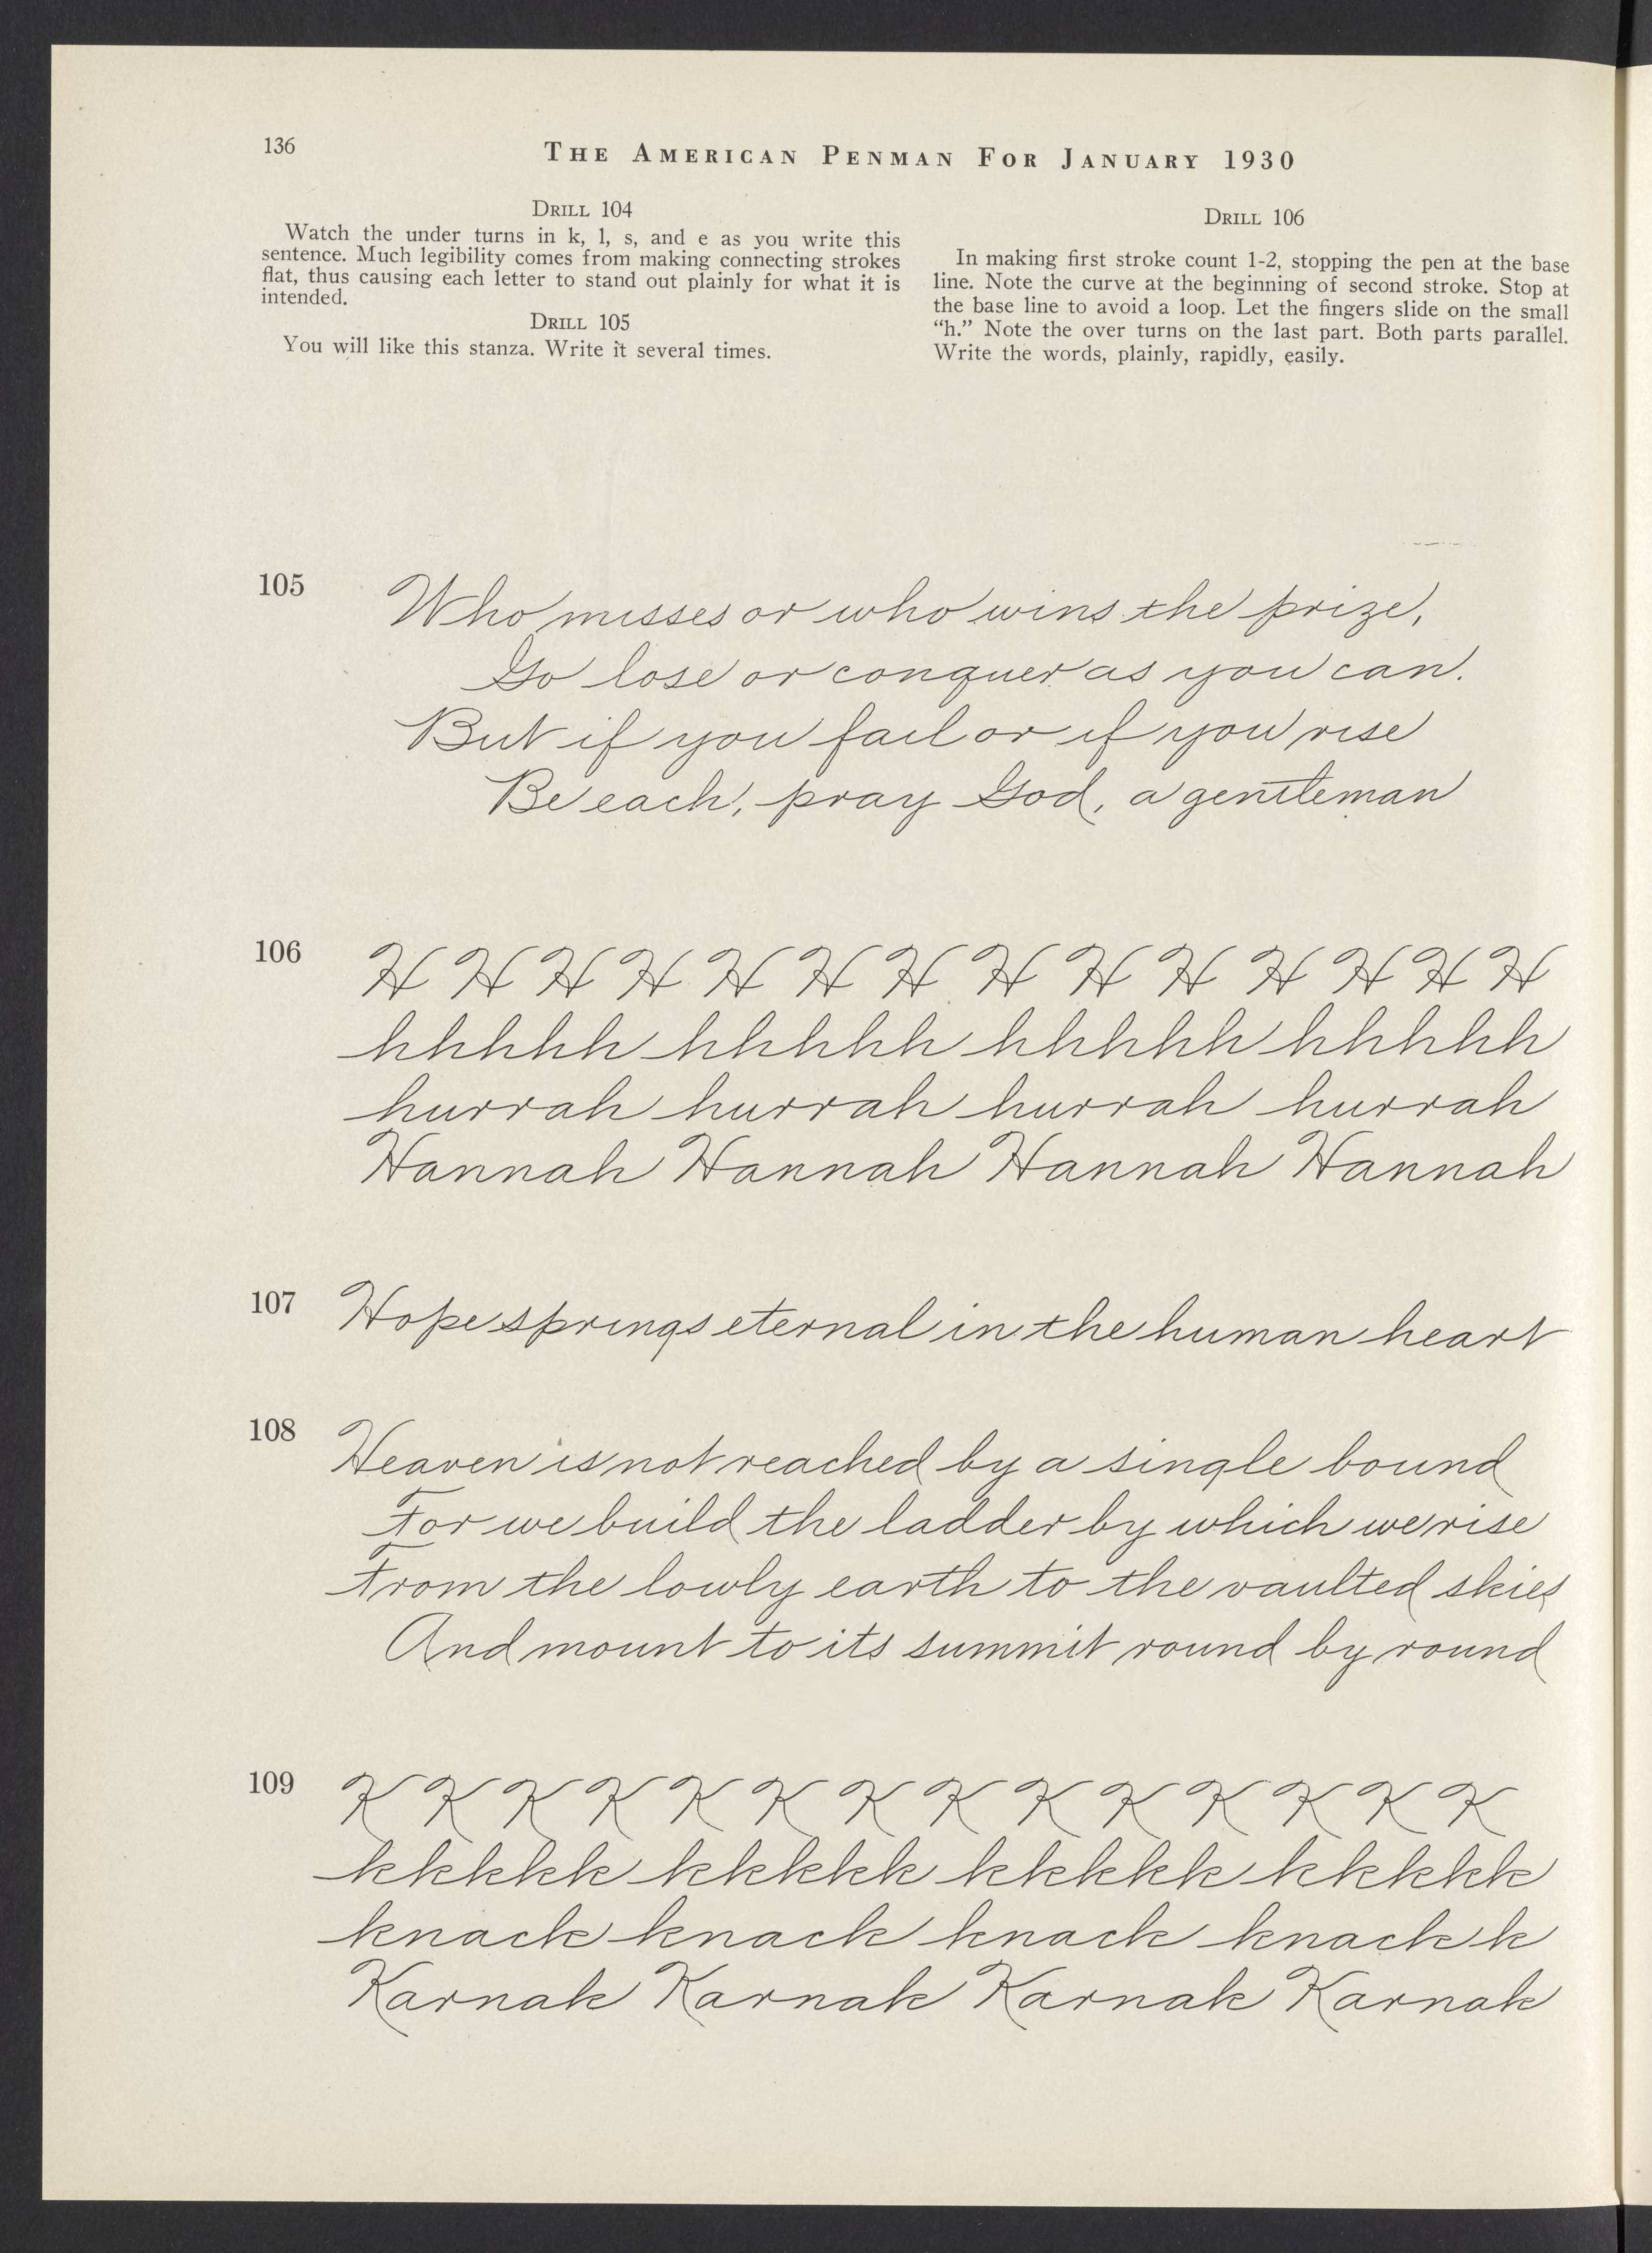 136
THE AMERICAN PENMAN FOR JANUARY 1930
DRILL 104
Watch the under turns in k, l, s, and e as you write this
sentence. Much legibility comes from making connecting strokes
flat, thus causing each letter to stand out plainly for what it is
intended.
DRILL 105
You will like this stanza. Write it several times.
DRILL 106
In making first stroke count 1-2, stopping the pen at the base
line. Note the curve at the beginning of second stroke. Stop at
the base line to avoid a loop. Let the fingers slide on the small
“h.” Note the over turns on the last part. Both parts parallel.
Write the words, plainly, rapidly, easily.
105
Who misses or who wins the prize,
Go lose or conquer as you can.
But if you fail or if you rise
Be each, pray God, a gentleman
106
H H H H H H H H H H H H H H
hhhhh hhhhh hhhhh hhhhh
hurrah hurrah hurrah hurrah
Hannah Hannah Hannah Hannah
107
Hope springs eternal in the human heart
108
Heaven is not reached by a single bound
For we build the ladder by which we rise
From the lowly earth to the vaulted skies
And mount to its summit round by round
109
K K K K K K K K K K K K K K
kkkkk kkkkk kkkkk kkkkk
knack knack knack knack k
Karnak Karnak Karnak Karnak